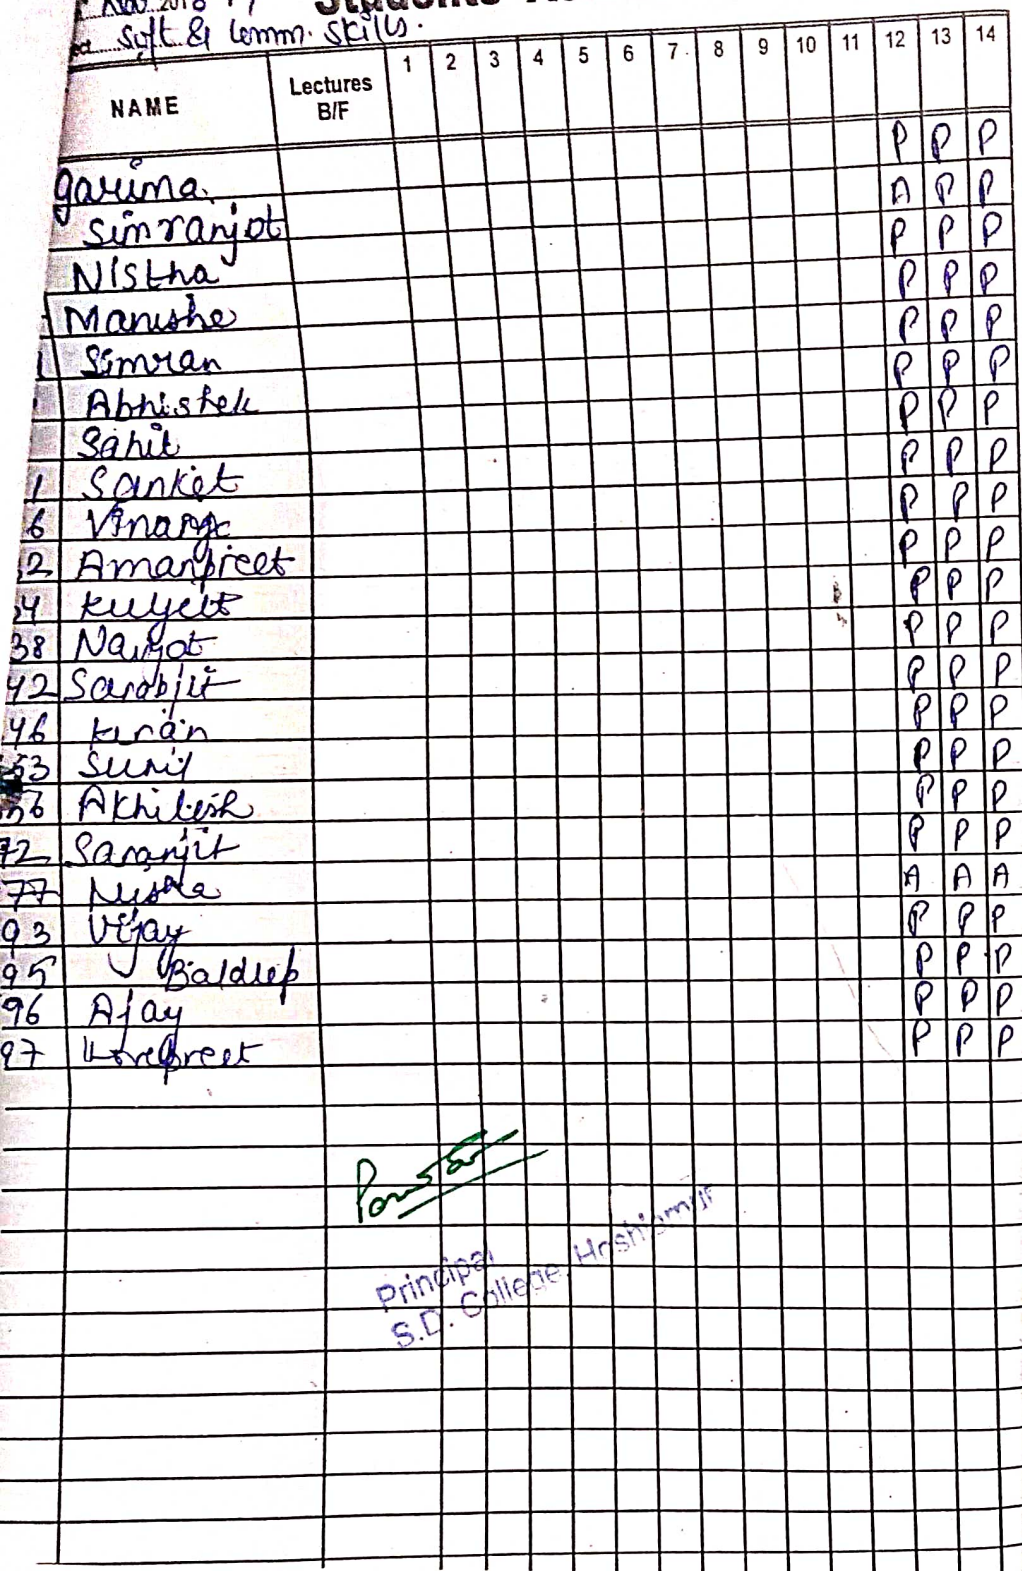 Nov 2018
Students
Soft & Comm. Skills.
NAME Lectures B/F 1 2 3 4 5 6 7 8 9 10 11 12 13 14
garima. P P P
Simranjot A P P
Nistha P P P
Manisha P P P
Simran P P P
Abhishek P P P
Sahil P P P
1 Sanket P P P
6 P P P
2 Amanpreet P P P
4 Kuljeet P P P
38 Navjot P P P
42 Sarabjit P P P
46 Kiran P P P
53 Sunil P P P
56 Akhilesh P P P
72 Saranjit P P P
77 Nisha A A A
93 Vijay P P P
95 Baldeep P P P
96 Ajay P P P
97 Lovepreet P P P
Principal
S.D. College, Hoshiarpur